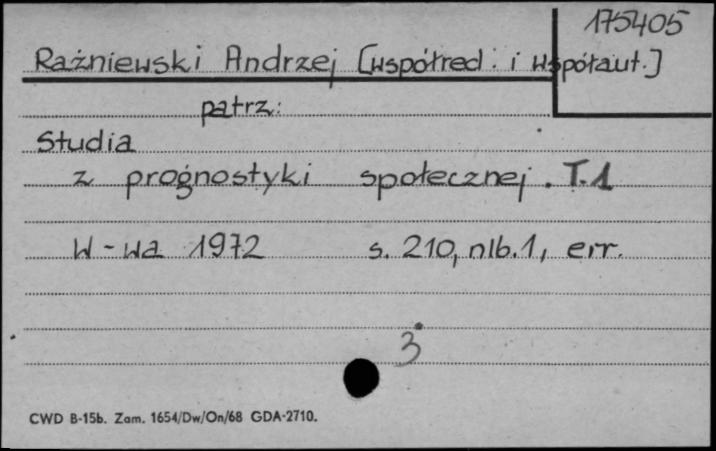 175405
Rażniewski Andrzej [współred. i współaut.]
patrz:
Studia
z prognostyki społecznej. T.1
W-wa 1972 s. 210, nlb.1, err.
3
CWD B-15b. Zam. 1654/Dw/On/68 GDA-2710.